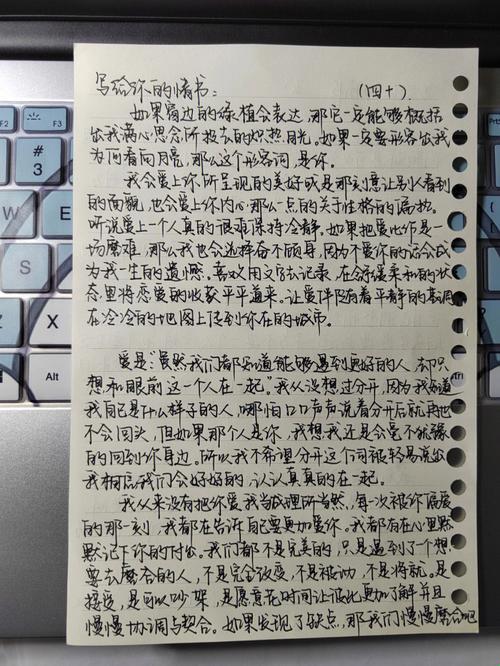 写给你的情书：　（四十）
如果窗边的绿植会表达，那它一定能够概括
出我满心思念所投去的炽热目光。如果一定要形容出我
为何看向月亮，那么这个形容词，是你。
我会爱上你所呈现的美好或是刻意让别人看到
的面貌，也会爱上你内心那么一点的关于性格的偏执。
听说爱上一个人真的很难保持冷静，如果把爱比作是一
场磨难，那么我也会选择奋不顾身，因为不爱你的话会成
为我一生的遗憾。喜欢用文字去记录，在舒缓柔和的状
态里将恋爱的收获平平道来。让爱伴随着平静的基调
在冷冷的地图上传到你在的城市。
爱是：“虽然我们都知道能够遇到更好的人，却只
想和眼前这一个人在一起。”我从没想过分开，因为我知道
我自己是什么样子的人，哪怕口口声声说着分开后就再也
不会回头，但如果那个人是你，我想我还是会毫不犹豫
的回到你身边。所以我不希望分开这个词被轻易说出
我相信我们会好好的，认认真真的在一起。
我从来没有把你爱我当成理所当然，每一次被你偏爱
的那一刻，我都在告诉自己要更加爱你。我都有在心里默
默记下你的付出。我们都不是完美的，只是遇到了个想
要去磨合的人，不是完全改变，不是被动，不是将就。是
接受，是可以吵架，是愿意花时间让彼此更加了解并且
慢慢协调与契合。如果发现了缺点，那我们慢慢磨合吧
F2
F3
#
3